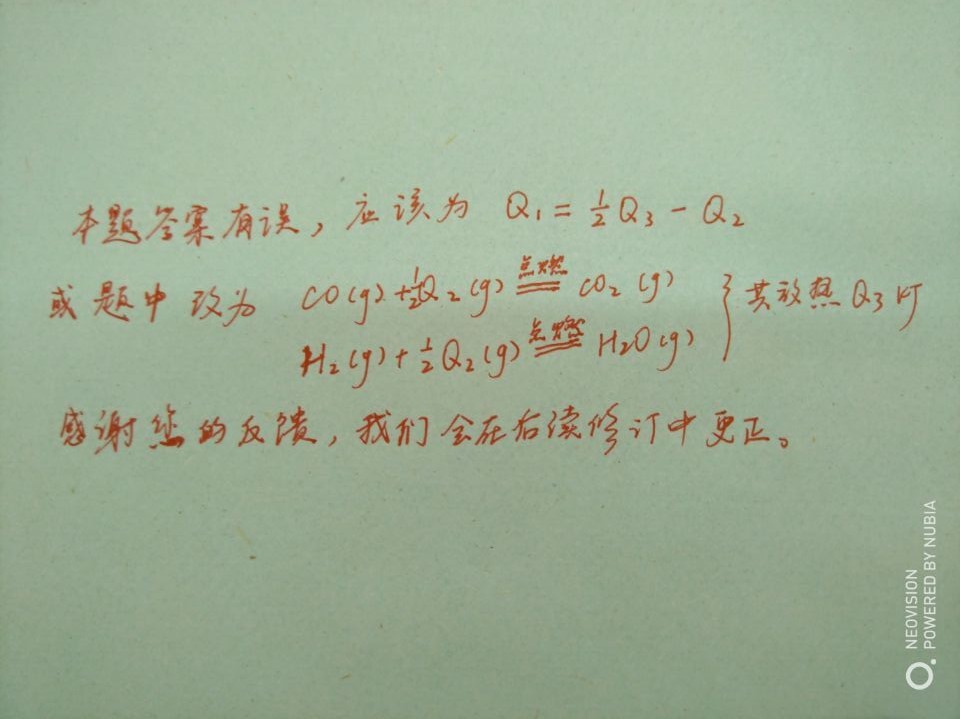 本题答案有误，应该为 Q₁ = ½Q₃ - Q₂
或题中改为 CO(g) + ½Q₂(g) 点燃 CO₂(g)
H₂(g) + ½Q₂(g) 点燃 H₂O(g) } 共放热 Q₃ kJ
感谢您的反馈，我们会在后续修订中更正。
NEOVISION
POWERED BY NUBIA